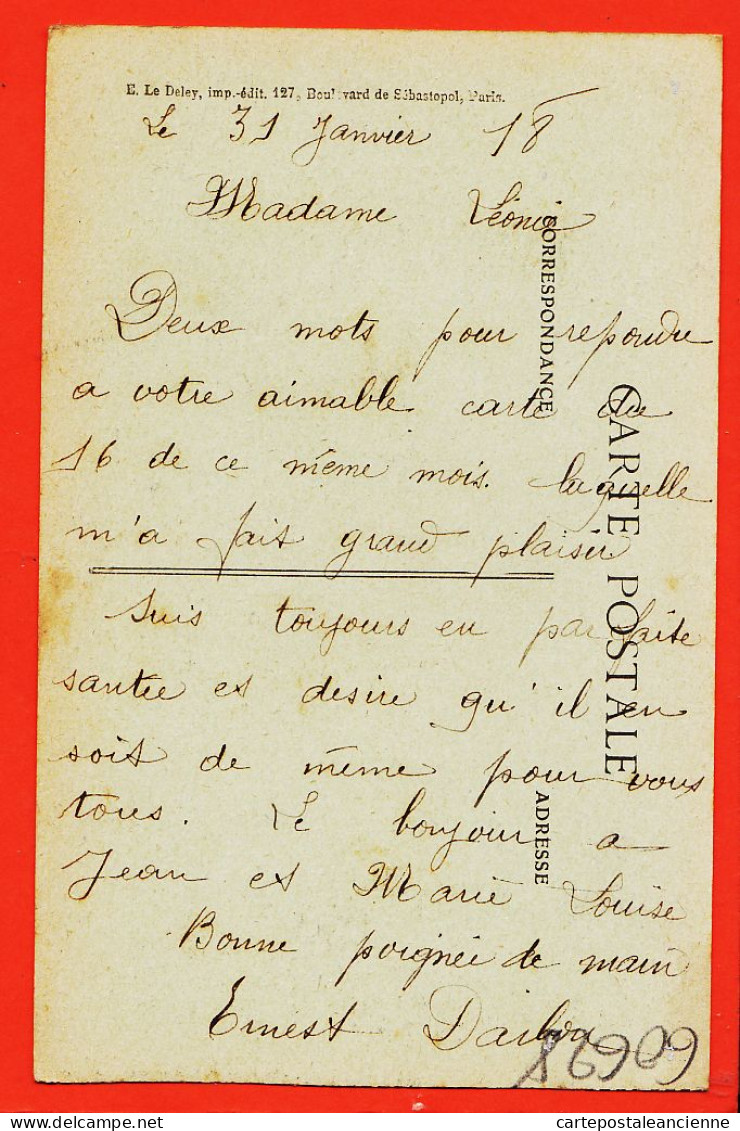 E. Le Deley, imp.-édit. 127, Boulevard de Sébastopol, Paris.
Le 31 Janvier 18
Madame Léonie
CORRESPONDANCE
CARTE POSTALE
ADRESSE
Deux mots pour repondre
a votre aimable carte du
16 de ce même mois. laquelle
m'a fait grand plaisir
Suis toujours en parfaite
santée et desire qu'il en
soit de même pour vous
tous. Le bonjour a
Jean et Marie Louise
Bonne poignée de main
Ernest
delcampe.net
cartepostaleancienne